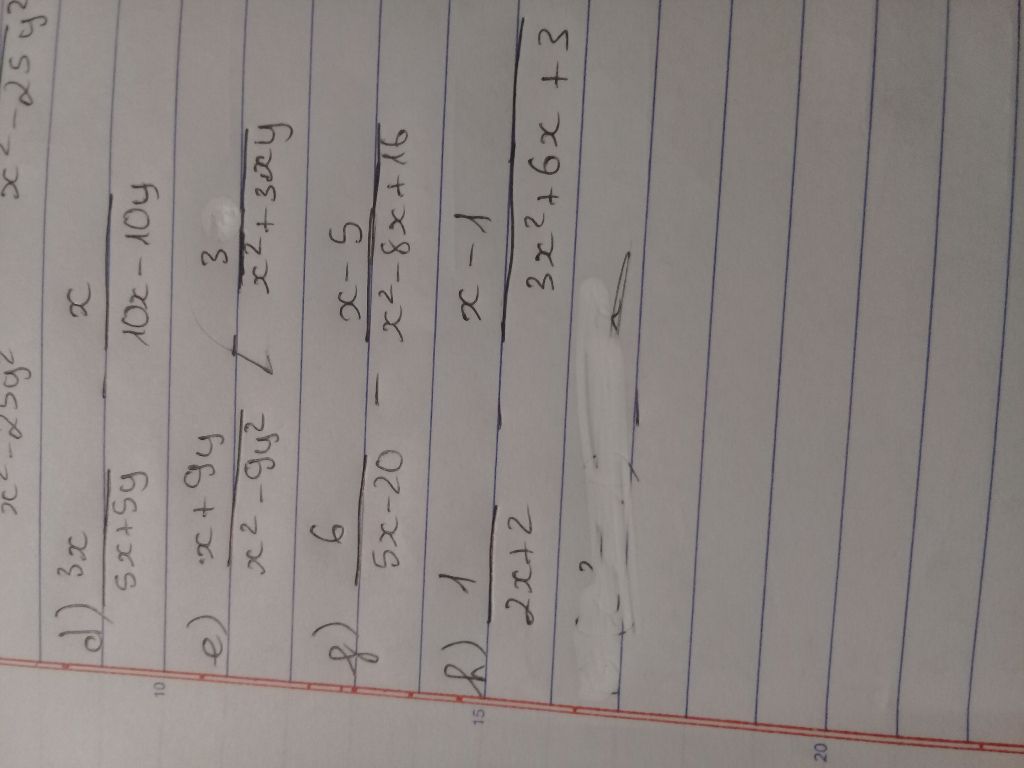 x² - 25y² x² - 25y²
d) 3x x
5x+5y - 10x - 10y
e) x + 9y 3
x² - 9y² / x² + 3xy
f) 6 x - 5
5x - 20 - x² - 8x + 16
h) 1 x - 1
2x + 2 - 3x² + 6x + 3
10
15
20